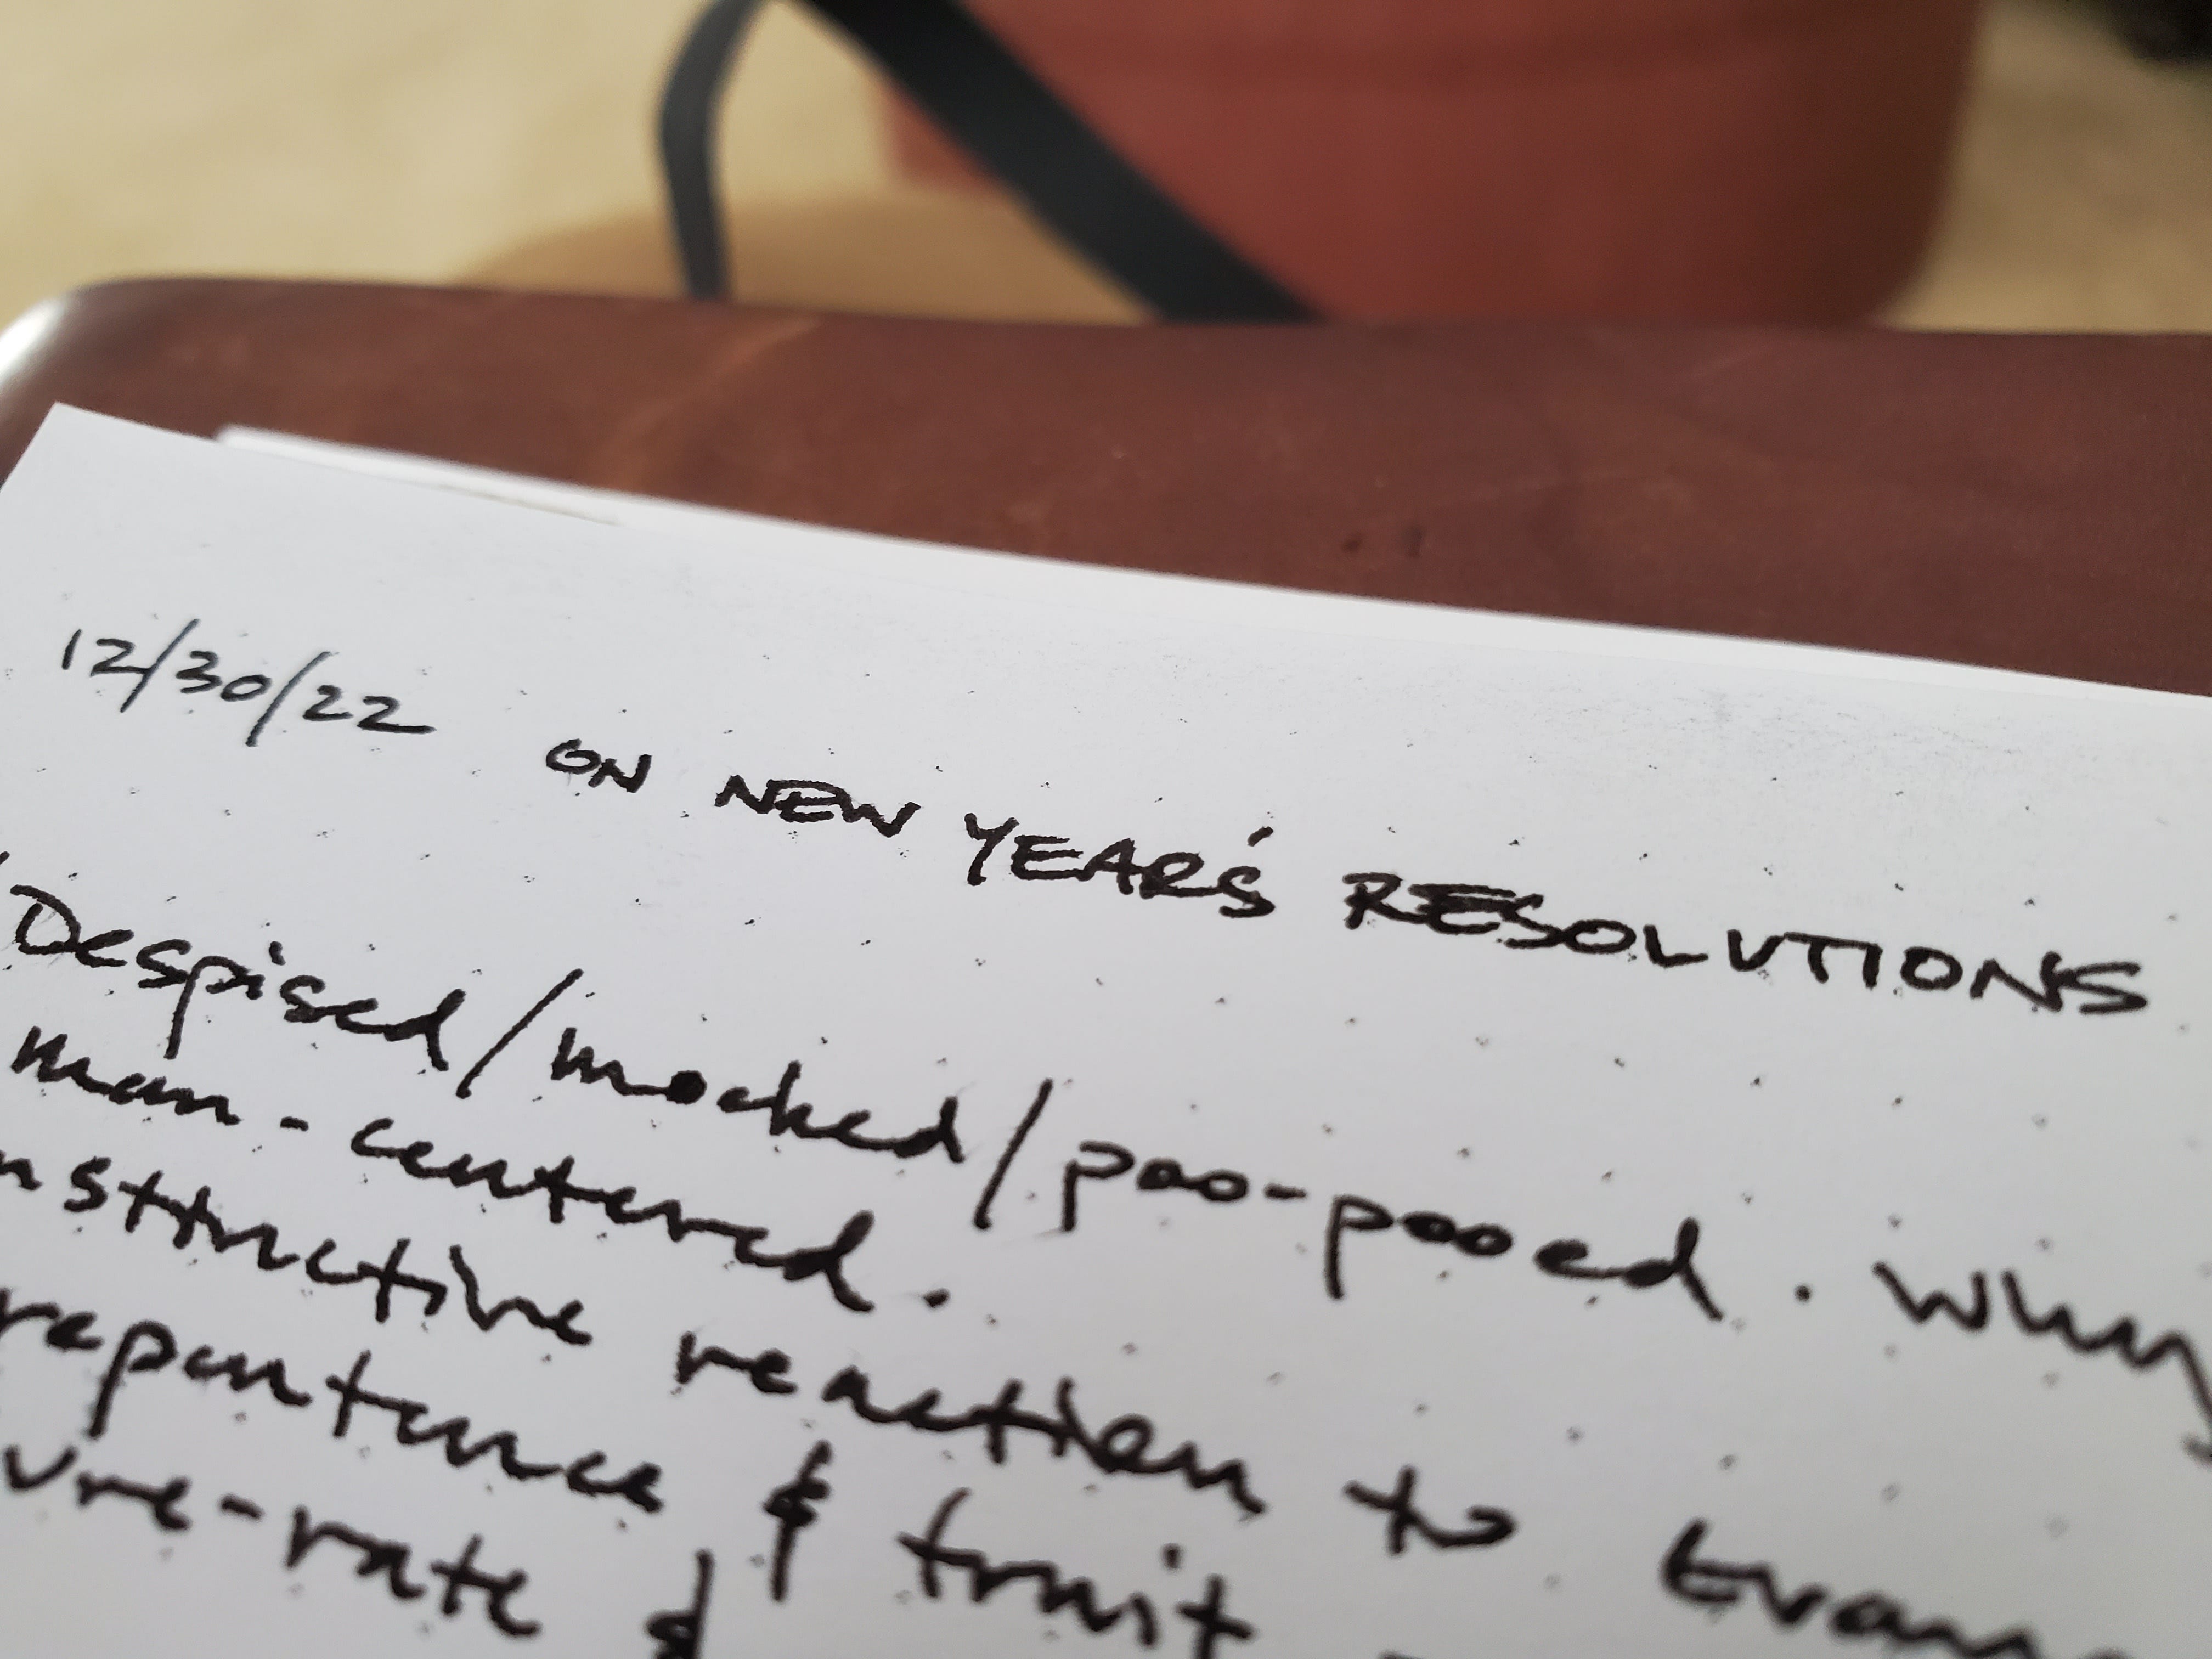 12/30/22 ON NEW YEAR'S RESOLUTIONS
Despised/mocked/poo-pooed. Why
man-centered.
nstinctive reaction to Evan
repentance & fruit
ure-rate &